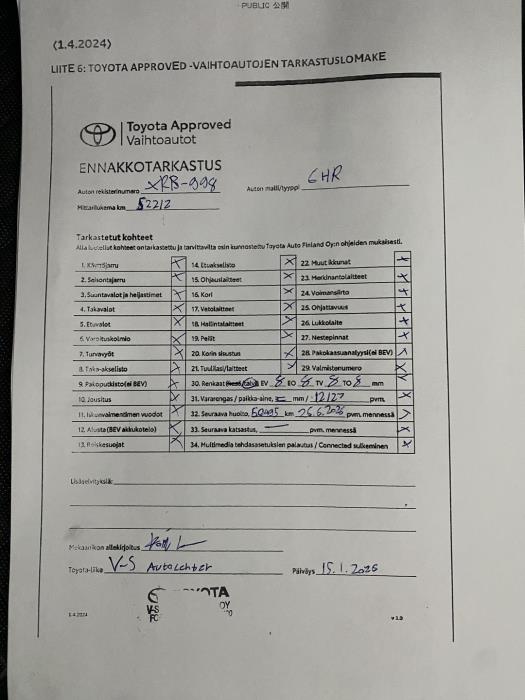 PUBLIC 公開
(1.4.2024)
LIITE 6: TOYOTA APPROVED -VAIHTOAUTOJEN TARKASTUSLOMAKE
Toyota Approved
Vaihtoautot
ENNAKKOTARKASTUS
Auton rekisterinumero XRB-998
Auton malli/tyyppi CHR
Mittarilukema km 52212
Tarkastetut kohteet
Alla luetellut kohteet on tarkastettu ja tarvittavilta osin kunnostettu Toyota Auto Finland Oy:n ohjeiden mukaisesti.
1. Käyttöjarru X 14. Etuakselisto X 22. Muut ikkunat X
2. Seisontajarru X 15. Ohjauslaitteet X 23. Merkinantolaitteet X
3. Suuntavalot ja heijastimet X 16. Kori X 24. Voimansiirto X
4. Takavalot X 17. Vetolaitteet X 25. Ohjattavuus X
5. Etuvalot X 18. Hallintalaitteet X 26. Lukkolaite X
6. Varoituskolmio X 19. Peilit X 27. Nestepinnat X
7. Turvavyöt X 20. Korin sisustus X 28. Pakokaasuanalyysi(ei BEV) X
8. Taka-akselisto X 21. Tuulilasi/laitteet X 29. Valmistenumero X
9. Pakoputkisto(ei BEV) X 30. Renkaat EV 8 EO 8 TV 8 TO 8 mm X
10. Jousitus X 31. Vararengas / paikka-aine, mm / 12/27 pvm. X
11. Iskunvaimendimen vuodot X 32. Seuraava huolto, km 26.6.2026 pvm. mennessä X
12. Alusta (BEV akkukotelo) X 33. Seuraava katsastus, — pvm. mennessä X
13. Roiskesuojat X 34. Multimedia tehdasasetuksien palautus / Connected sulkeminen X
Lisäselvityksiä:
Mekaanikon allekirjoitus
Toyota-liike V-S Autocenter
Päiväys 15.1.2026
OTA
V-S OY
1.4.2024
v 1.0